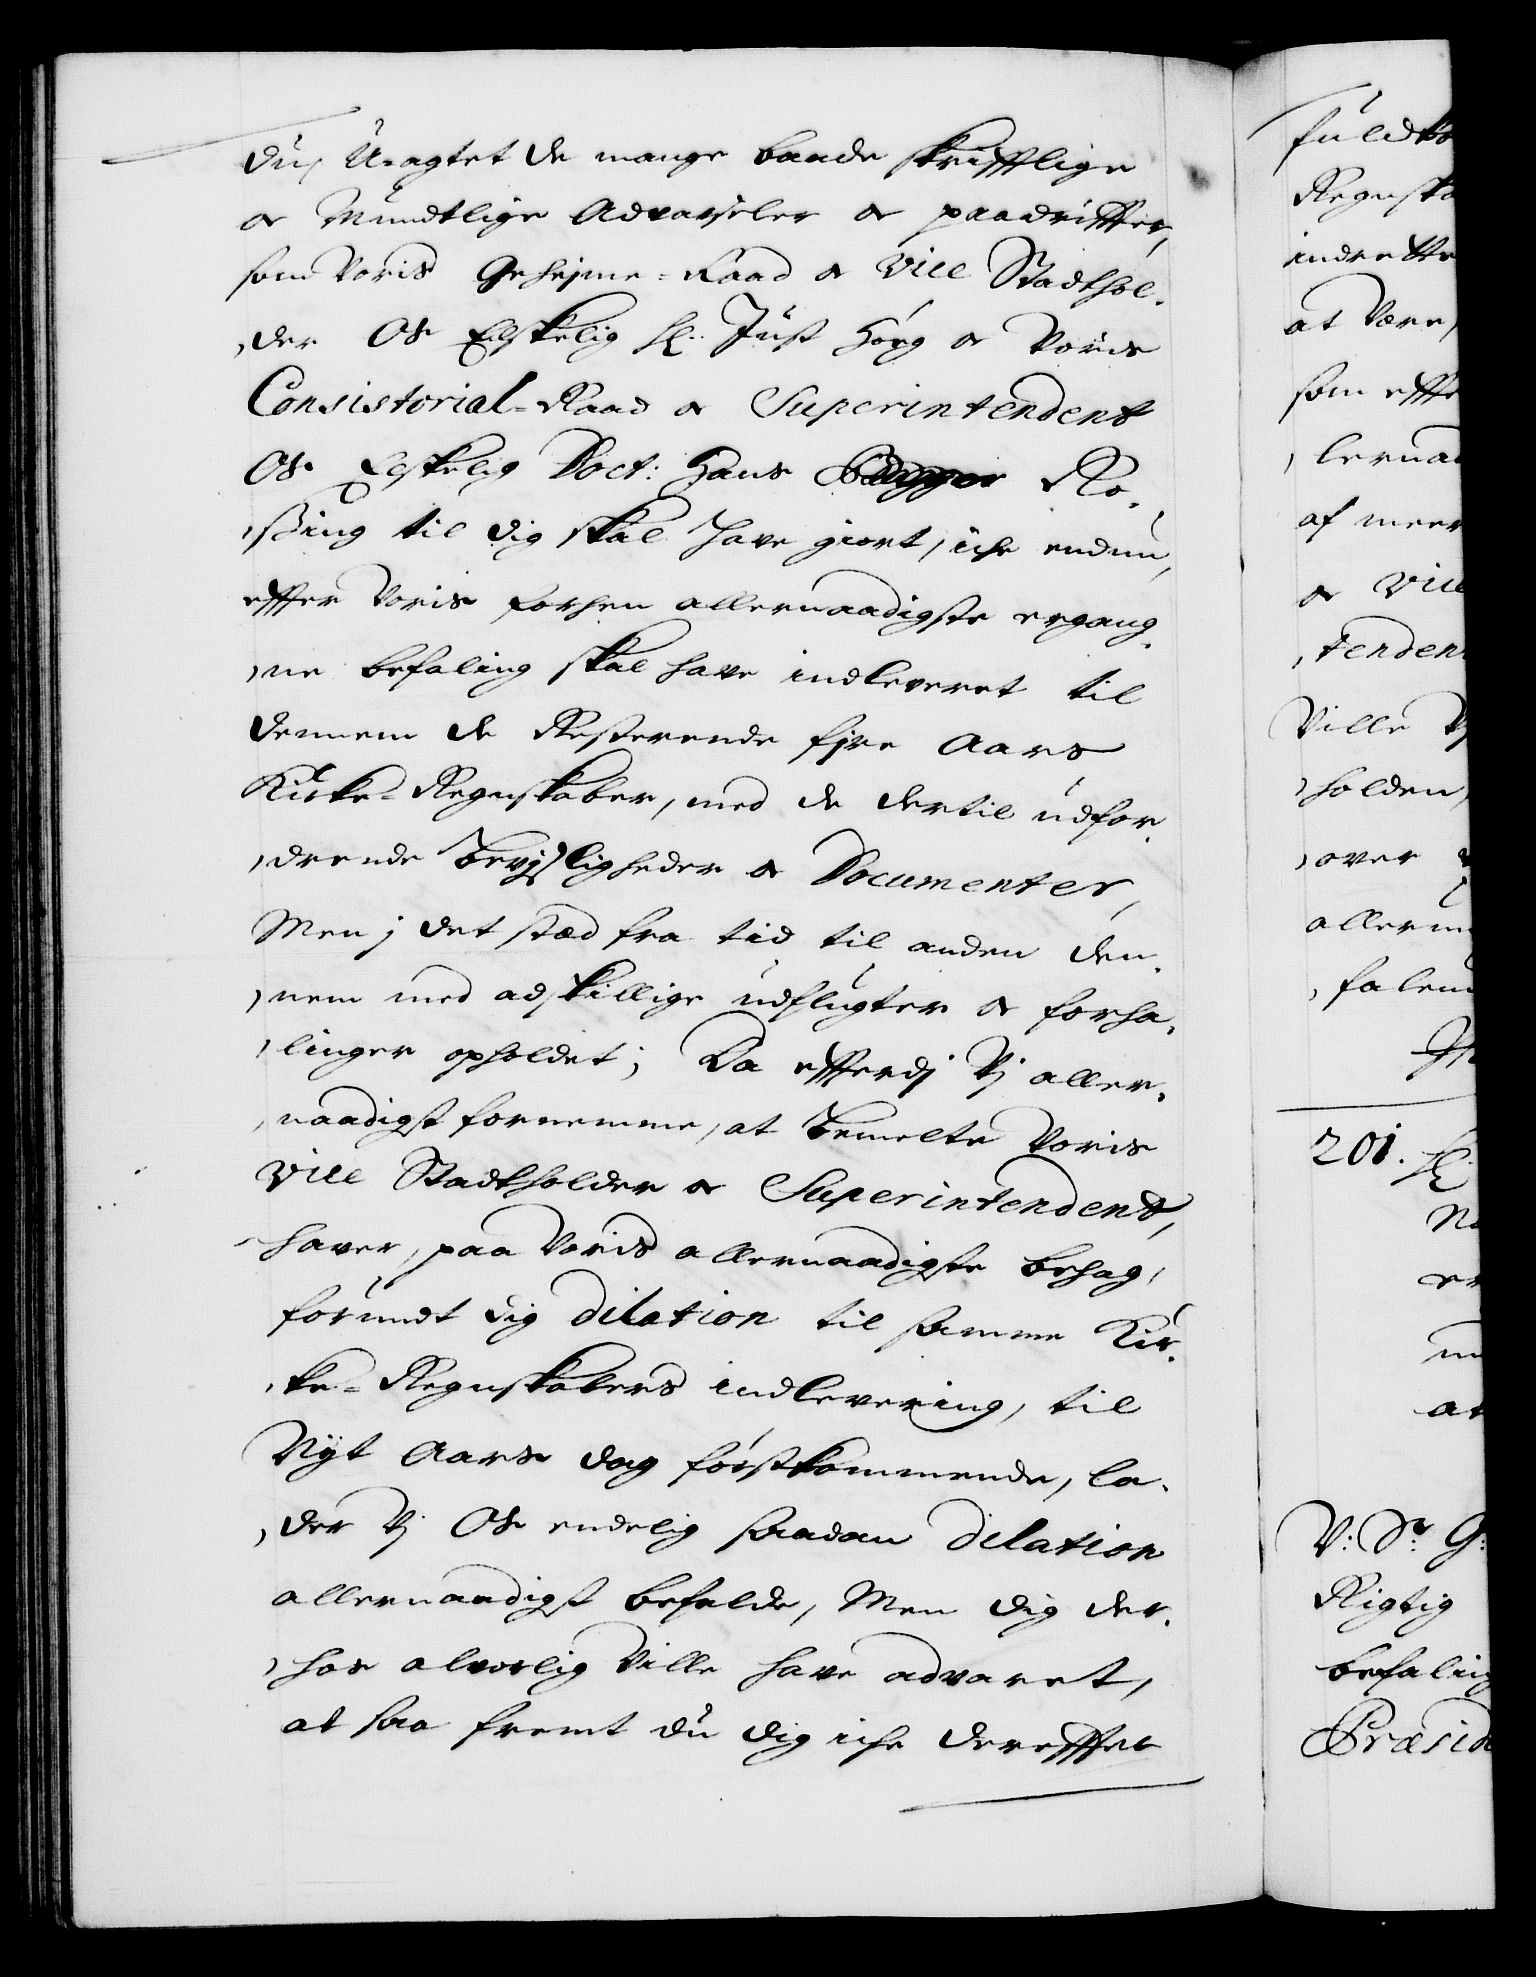 du, U-agtet de mange baade skrifftlige
oc Mundtlige Advarseler oc paadriffter,
som Voris Geheime-Raad oc Vice Stadthol-
der Os Elskelig Hr: Just Høeg oc Voris
Consistorial-Raad oc Superintendent
Os Elskelig Doct: Hans Ro-
sing til dig skal have giort, iche endnu
effter Voris forhen allernaadigste ergang-
ne befaling skal have indleveret til
dennem de Resterende fire Aars
Kirke-Regnskaber, med de dertil udfor-
drende Beviisligheder oc Documenter,
Men j det sted fra tid til anden den-
nem med adskillige udflugter oc forha-
linger opholdet; Da efftersom Vj aller-
naadigst fornemme, at Bemelte Voris
Vice Stadtholder oc Superintendent,
haver, paa Voris allernaadigste behag,
forundt dig dilation til samme Kir-
ke-Regnskabers indlevering, til
Nyt Aars dag førstkommende, la-
der Vj Os endelig saadan dilation
allernaadigst befalde, Men dig der-
hos alvorlig Ville have advaret,
at saa fremt du dig iche dereffter
fuldko
Regnska
indrette
at Være,
som effte
lernaa
af meer
oc Vice
tenden
Ville V
holden,
over
allerun
falend
201. Hr:
V: Sr: G:
Rigtig
befaling
Præsid